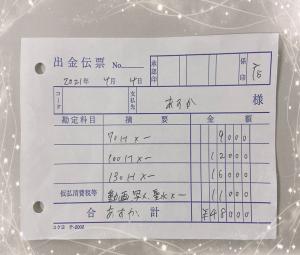 出金伝票 No.
承認印
係印
2021年 4月 4日
コード
支払先 あすか 様
勘定科目 摘要 金額
70分×ー 9000
100分×ー 12000
130分×ー 16000
仮払消費税等 動画 写メ ー 11000
合 あすか 計 ¥48000
コクヨ テ-2002